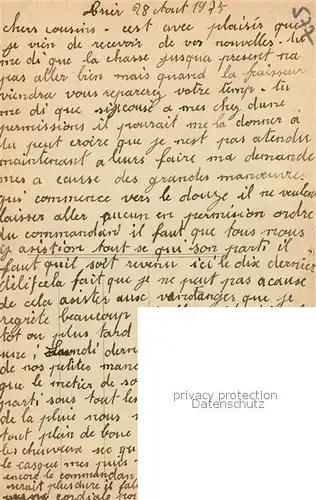 Trier 28 Aout 1925
577
chers cousins - cest avec plaisir que
je vien de recevoir de vos nouvelles. tu
me di que la chasse jusqua present na
pas aller bien mais quand la fraicheur
viendra vous reparerez votre temps - tu
me di que si je cose a mes chez dune
permissions il pourait me la donner a
tu peut croire que je nest pas atendu
maintenant a leurs faire ma demande
mes a causse des grandes manœuvre
qui commence vers le douze il ne veulent
laisser aller aucun en permision ordre
du commandant il faut que tous nous
y asistion tout se qui son parti il
faut quil soit revenu ici le dix dernier
délif cela fait que je ne peut pas a cause
de cela asister aux vendanges que je
regrète beaucoup
tot ou plus tard
usse! Lundi dern
de nos petites mane
que le metier de so
parti sous tout les
de la pluie nous
tout plain de boue
les cheveux sec qu
le casque mes puis
encore le commandan
serait plus dure il fal
cordiale
privacy protection
Datenschutz